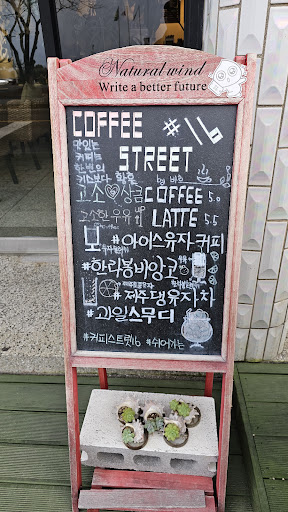 Natural wind
Write a better future
COFFEE #16
STREET
맛있는
커피는
한번의
키스보다 황홀
by 바흐
고소♡상큼 COFFEE 5.0
고소한우유 up LATTE 5.5
#아이스유자커피
#한라봉비앙코
#제주댕유자차
#과일스무디
#커피스트릿16 #쉬어가는